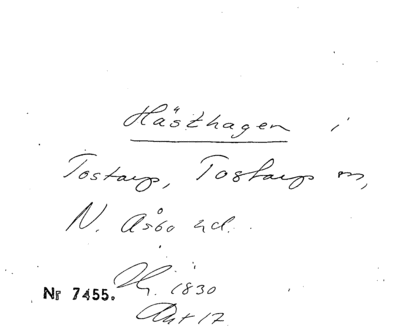 Hästhagen i
Tostarp, Tostarp sn,
N. Åsbo hd.
Hj. 1830
Nr 7455.
Akt 17